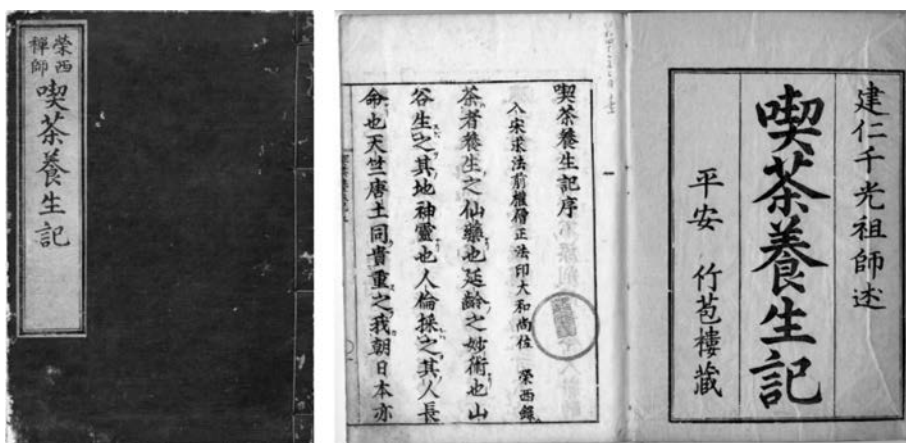 榮西
禪師
喫茶養生記
建仁千光祖師述
喫茶養生記
平安　竹苞樓藏
喫茶養生記序
入宋求法前權僧正法印大和尚位　榮西錄
茶者養生之仙藥也延齡之妙術也山
谷生之其地神靈也人倫採之其人長
命也天竺唐土同貴重之我朝日本亦